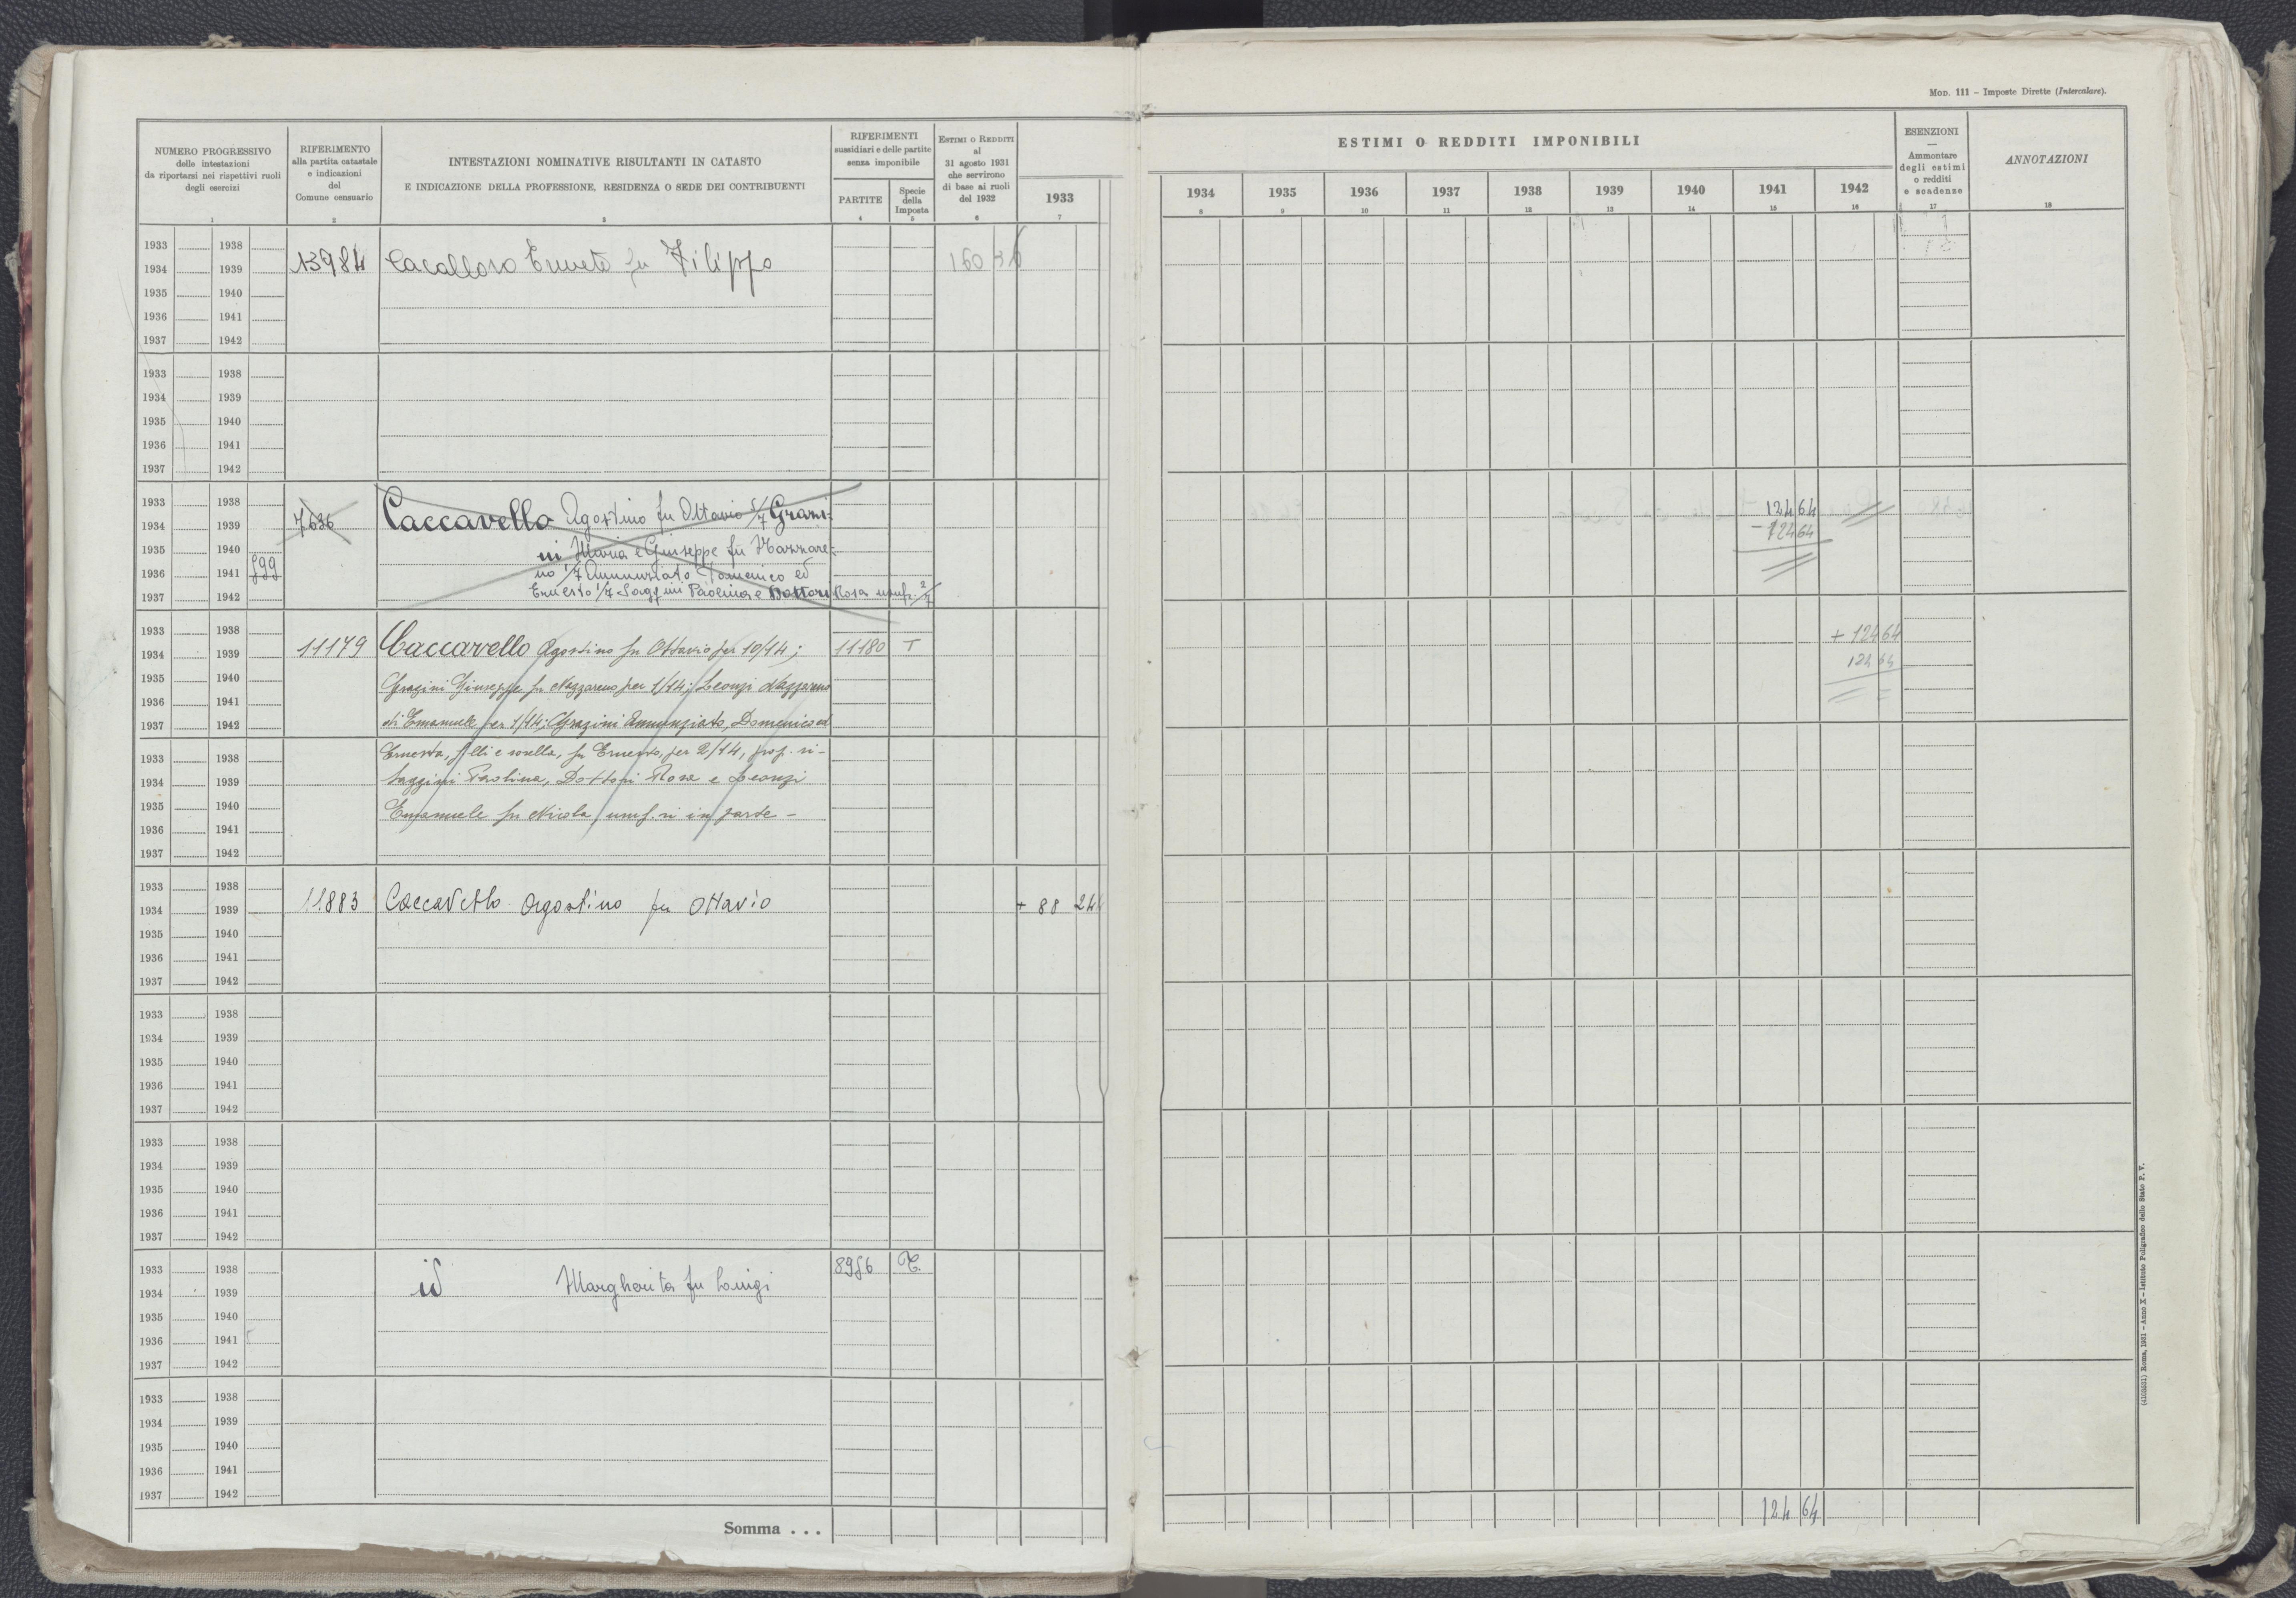 MOD. 111 - Imposte Dirette (Intercalare).
NUMERO PROGRESSIVO
delle intestazioni
da riportarsi nei rispettivi ruoli
degli esercizi
1
RIFERIMENTO
alla partita catastale
e indicazioni
del
Comune censuario
2
INTESTAZIONI NOMINATIVE RISULTANTI IN CATASTO
E INDICAZIONE DELLA PROFESSIONE, RESIDENZA O SEDE DEI CONTRIBUENTI
3
RIFERIMENTI
sussidiari e delle partite
senza imponibile
PARTITE
4
Specie
della
Imposta
5
ESTIMI O REDDITI
al
31 agosto 1931
che servirono
di base ai ruoli
del 1932
6
1933
7
ESTIMI O REDDITI IMPONIBILI
1934 1935 1936 1937 1938 1939 1940 1941 1942
8 9 10 11 12 13 14 15 16
ESENZIONI
—
Ammontare
degli estimi
o redditi
e scadenze
17
ANNOTAZIONI
18
1933 1938
1934 1939 13984 fu Filippo 160
1935 1940
1936 1941
1937 1942
1933 1938
1934 1939
1935 1940
1936 1941
1937 1942
1933 1938 124 64
1934 1939 7636 Caccavello Agostino fu Ottavio 5/7 Grazi- - 124 64
1935 1940 ni Maria e Giuseppe fu Nazzare-
1936 1941 899 no 1/7 Annunziato Domenico ed
1937 1942 Ernesto 1/7 Paolina e Dottori Rosa usuf. 2/7
1933 1938 + 124 64
1934 1939 11179 Caccavello Agostino fu Ottavio per 10/14; 11180 T
124 64
1935 1940 Grazini Giuseppe fu Nazzareno per 1/14; Leonzi Nazzareno
1936 1941
1937 1942 di Emanuele per 1/14; Grazini Annunziato, Domenico ed
1933 1938 Ernesta, f.lli e sorella, fu Ernesto, per 2/14, prop. ri-
1934 1939 Saggini Paolina, Dottori Rosa e Leonzi
1935 1940 Emanuele fu Nicola usuf. ri in parte -
1936 1941
1937 1942
1933 1938
1934 1939 11883 Caccavello Agostino fu Ottavio + 88 244
1935 1940
1936 1941
1937 1942
1933 1938
1934 1939
1935 1940
1936 1941
1937 1942
1933 1938
1934 1939
1935 1940
1936 1941
1937 1942
1933 1938 8956 T.
1934 1939 id Margherita fu Luigi
1935 1940
1936 1941
1937 1942
1933 1938
1934 1939
1935 1940
1936 1941
1937 1942
124 64
Somma . . .
(4103531) Roma, 1931 - Anno X - Istituto Poligrafico dello Stato P. V.